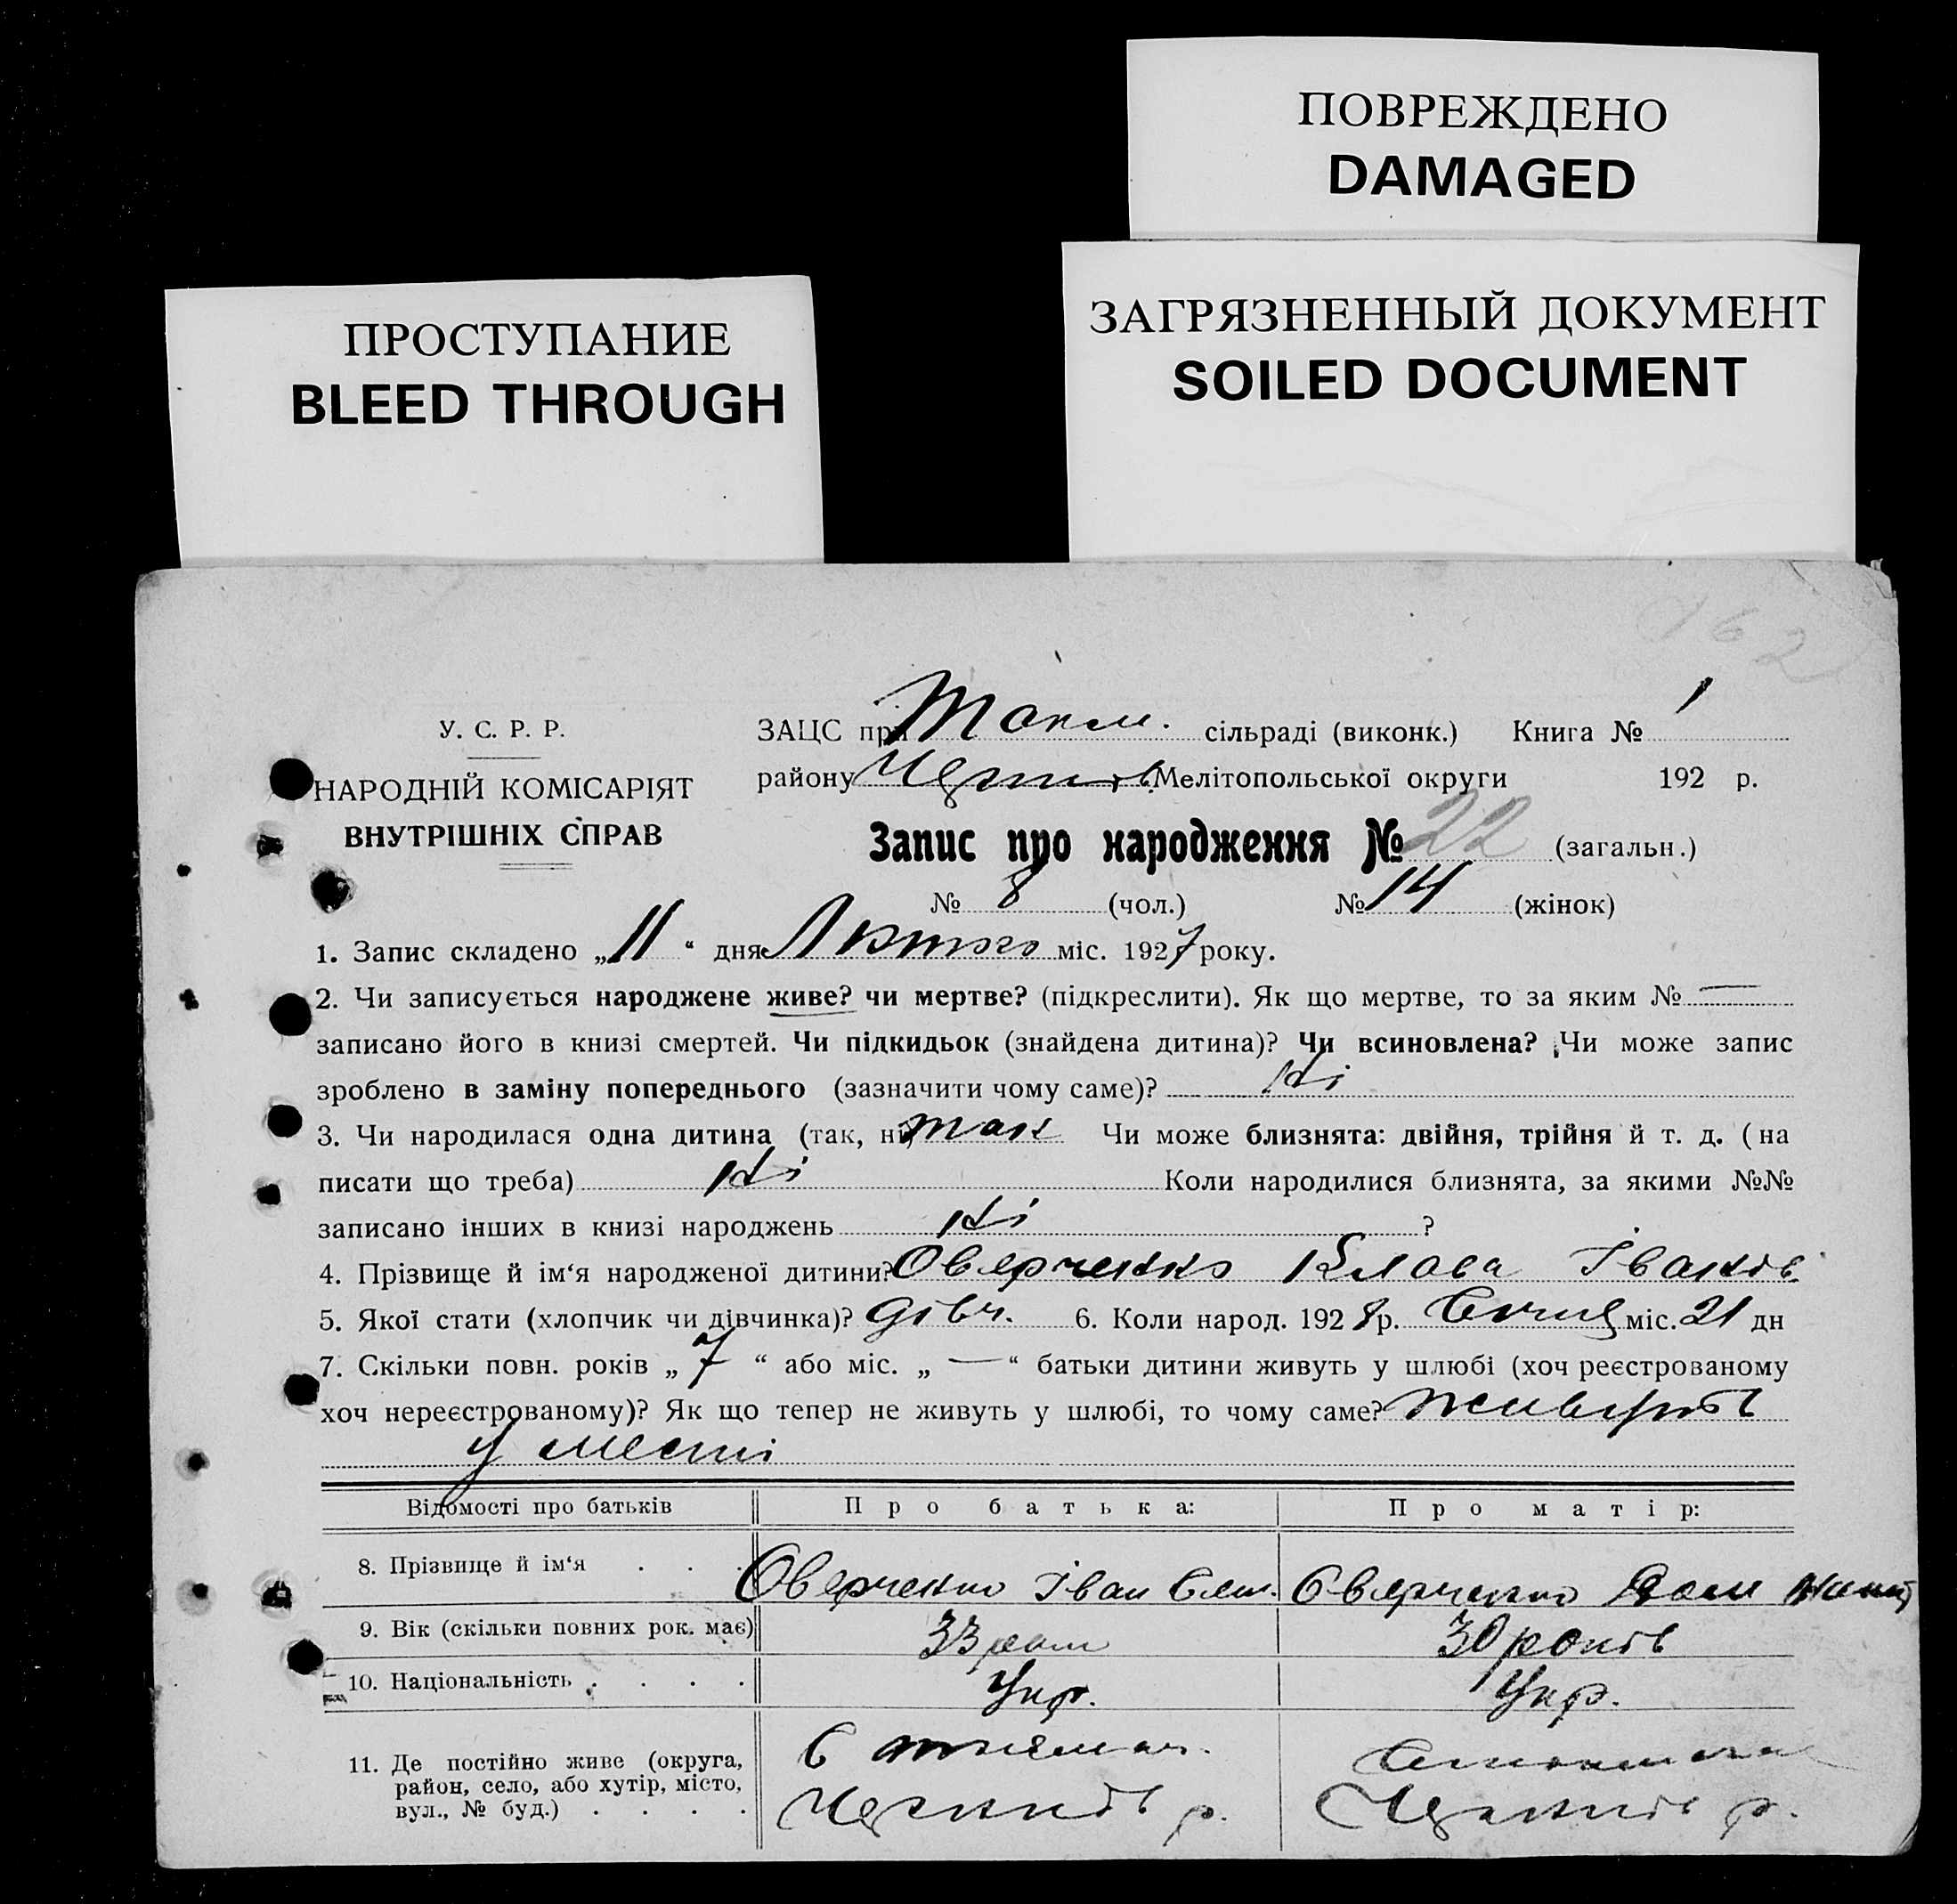 ПОВРЕЖДЕНО
DAMAGED
ЗАГРЯЗНЕННЫЙ ДОКУМЕНТ
SOILED DOCUMENT
ПРОСТУПАНИЕ
BLEED THROUGH
162
У. С. Р. Р.
НАРОДНІЙ КОМІСАРІЯТ
ВНУТРІШНІХ СПРАВ
ЗАЦС при Токм. сільраді (виконк.) Книга № 1
району Мелітопольської округи 192 р.
Запис про народження № 22 (загальн.)
№ 8 (чол.) № 14 (жінок)
1. Запис складено „11“ дня Лютого міс. 1927 року.
2. Чи записується народжене живе? чи мертве? (підкреслити). Як що мертве, то за яким № —
записано його в книзі смертей. Чи підкидьок (знайдена дитина)? Чи всиновлена? Чи може запис
зроблено в заміну попереднього (зазначити чому саме)? Ні
3. Чи народилася одна дитина (так, ні) так Чи може близнята: двійня, трійня й т. д. (на
писати що треба) Ні Коли народилися близнята, за якими №№
записано інших в книзі народжень Ні ?
4. Прізвище й ім‘я народженої дитини? Оверченко Клава Іванів
5. Якої стати (хлопчик чи дівчинка)? дівч. 6. Коли народ. 192 р. міс. 21 дн
7. Скільки повн. років „7“ або міс. „—“ батьки дитини живуть у шлюбі (хоч реєстрованому
хоч нереєстрованому)? Як що тепер не живуть у шлюбі, то чому саме? живуть
у месті
Відомості про батьків Про батька: Про матір:
8. Прізвище й ім‘я . . . Оверченко Іван Оверченко
9. Вік (скільки повних рок. має) 33 30 років
10. Національність . . . . Укр. Укр.
11. Де постійно живе (округа,
район, село, або хутір, місто,
вул., № буд.) . . . . р. р.